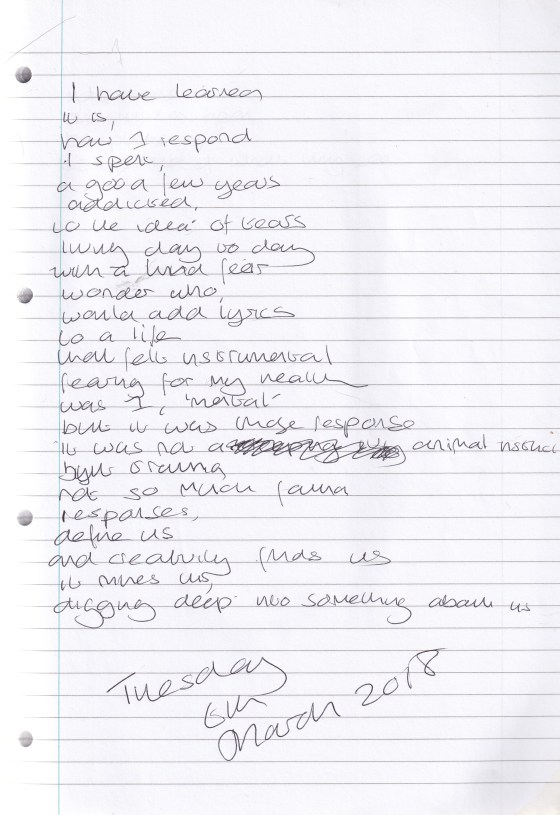 I have learned
it is,
how I respond
I spent,
a good few years
addicted,
to the idea of tears
living day to day
with a kind fear
wonder who,
would add lyrics
to a life
that felt instrumental
fearing for my health
was I, 'mental'
but it was those response
it was not a animal instinct
not so much fauna
responses,
define us
and creativity finds us
it mines us,
digging deep into something about us
Tuesday
6th
March 2018